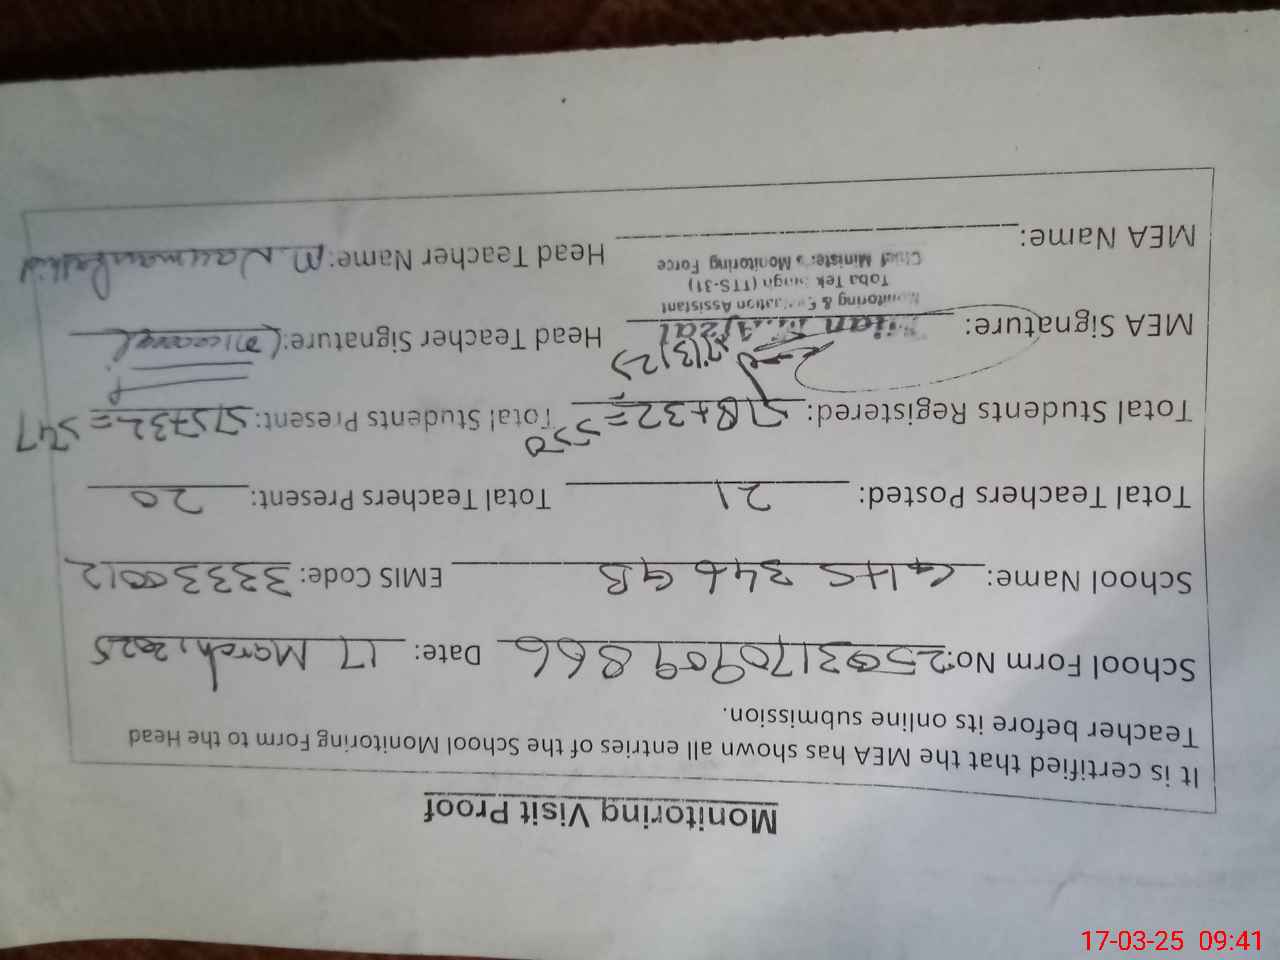 Monitoring Visit Proof
It is certified that the MEA has shown all entries of the School Monitoring Form to the Head
Teacher before its online submission.
School Form No: 2503170909866 Date: 17 March, 2025
School Name: GHS 346 GB EMIS Code: 33330012
Total Teachers Posted: 21 Total Teachers Present: 20
Total Students Registered: 518+32=550 Total Students Present: 515+32=547
MEA Signature: Head Teacher Signature:
Mian M. Afzal
Monitoring & Evaluation Assistant
Toba Tek Singh (TTS-31)
Chief Minister's Monitoring Force
MEA Name: Head Teacher Name: M. Nauman Rashid
17-03-25 09:41